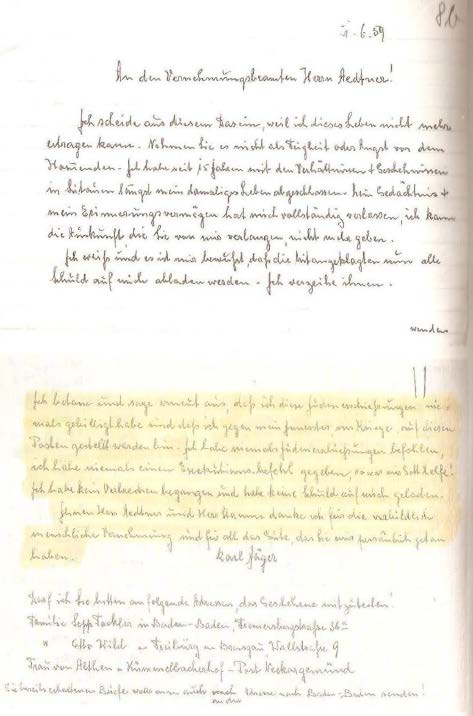 86
-6.59
An den Vernehmungsbeamten Herrn Aedtner!
Ich scheide aus diesem Dasein, weil ich dieses Leben nicht mehr
ertragen kann. Nehmen Sie es nicht als Feigheit oder Angst vor dem
Kommenden. Ich habe seit 15 Jahren mit den Verhältnissen + Geschehnissen
in Litauen längst mein damaliges Leben abgeschlossen. Mein Gedächtnis +
mein Erinnerungsvermögen hat mich vollständig verlassen, ich kann
die Auskunft, die Sie von mir verlangen, nicht mehr geben.
Ich weiß und es ist mir bewußt, daß die Mitangeklagten nun alle
Schuld auf mich abladen werden. - Ich verzeihe ihnen.
wenden
Ich betone und sage erneut aus, daß ich diese Judenerschießungen nie-
mals gebilligt habe und daß ich gegen mein Innerstes im Kriege auf diesen
Posten gestellt worden bin. Ich habe niemals Judenerschießungen befohlen,
ich habe niemals einen Exekutionsbefehl gegeben so wahr mir Gott helfe!
Ich habe kein Verbrechen begangen und habe keine Schuld auf mich geladen.
Ihnen Herr Aedtner und Herr danke ich für die vorbildlich
menschliche Vernehmung und für all das Gute, das Sie mir persönlich getan
haben. Karl Jäger
Darf ich Sie bitten an folgende Adressen, das Geschehene mitzuteilen!
Familie Sepp in Baden-Baden,
" Otto Wild in Freiburg im Breisgau, Wallstraße 9
Frau von Althen Kümmelbacherhof - Post Neckargemünd
Die bereits erhaltenen Briefe wolle man auch nach Baden-Baden senden!